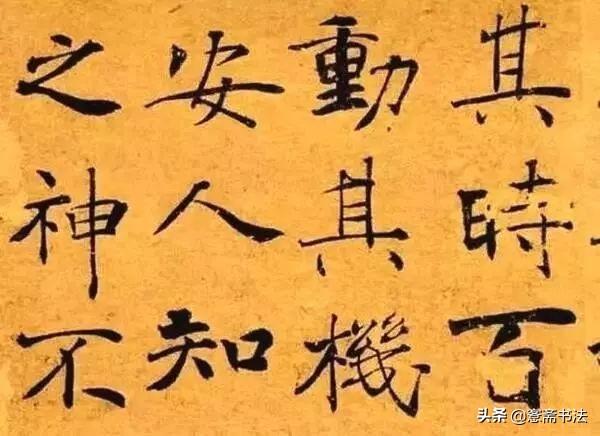 其時百
動其機
安人知
之神不
头条 @斋书法